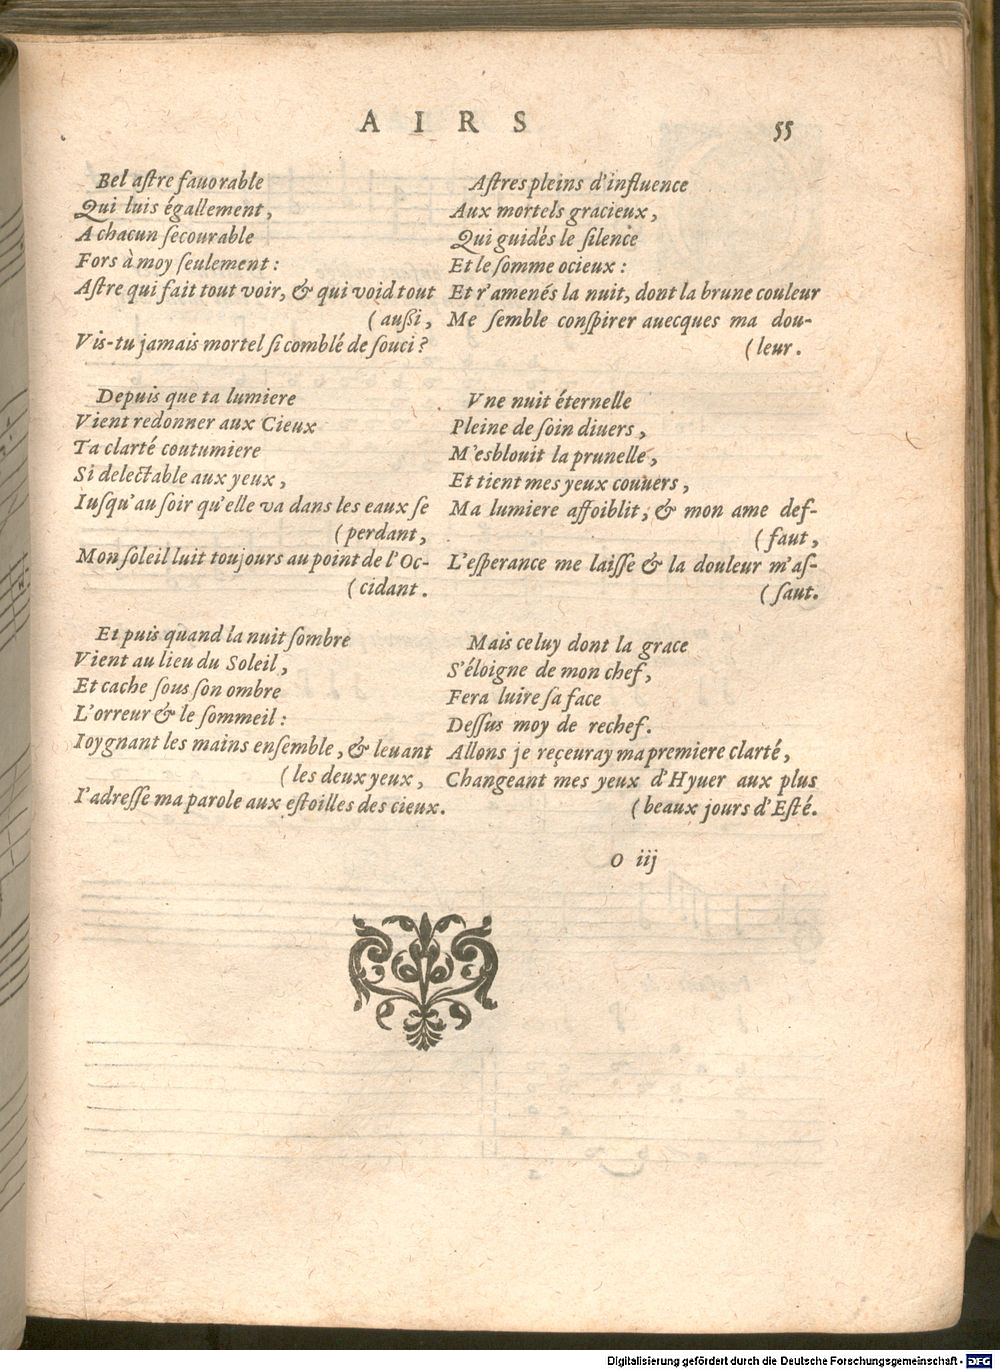 AIRS
55
Bel aſtre fauorable
Qui luis égallement,
A chacun ſecourable
Fors à moy ſeulement :
Aſtre qui fait tout voir, & qui void tout
(auſsi,
Vis-tu jamais mortel ſi comblé de ſouci ?
Depuis que ta lumiere
Vient redonner aux Cieux
Ta clarté coutumiere
Si delectable aux yeux,
Iuſqu'au ſoir qu'elle va dans les eaux ſe
(perdant,
Mon ſoleil luit toujours au point de l'Oc-
(cidant.
Et puis quand la nuit ſombre
Vient au lieu du Soleil,
Et cache ſous ſon ombre
L'orreur & le ſommeil :
Ioygnant les mains enſemble, & leuant
(les deux yeux,
I'adreſſe ma parole aux eſtoilles des cieux.
Aſtres pleins d'influence
Aux mortels gracieux,
Qui guidés le ſilence
Et le ſomme ocieux :
Et r'amenés la nuit, dont la brune couleur
Me ſemble conſpirer auecques ma dou-
(leur.
Vne nuit éternelle
Pleine de ſoin diuers,
M'esblouit la prunelle,
Et tient mes yeux couuers,
Ma lumiere affoiblit, & mon ame deſ-
(faut,
L'eſperance me laiſſe & la douleur m'aſ-
(ſaut.
Mais celuy dont la grace
S'éloigne de mon chef,
Fera luire ſa face
Deſſus moy de rechef.
Allons je reçeuray ma premiere clarté,
Changeant mes yeux d'Hyuer aux plus
(beaux jours d'Eſté.
O iij
Digitalisierung gefördert durch die Deutsche Forschungsgemeinschaft - DFG